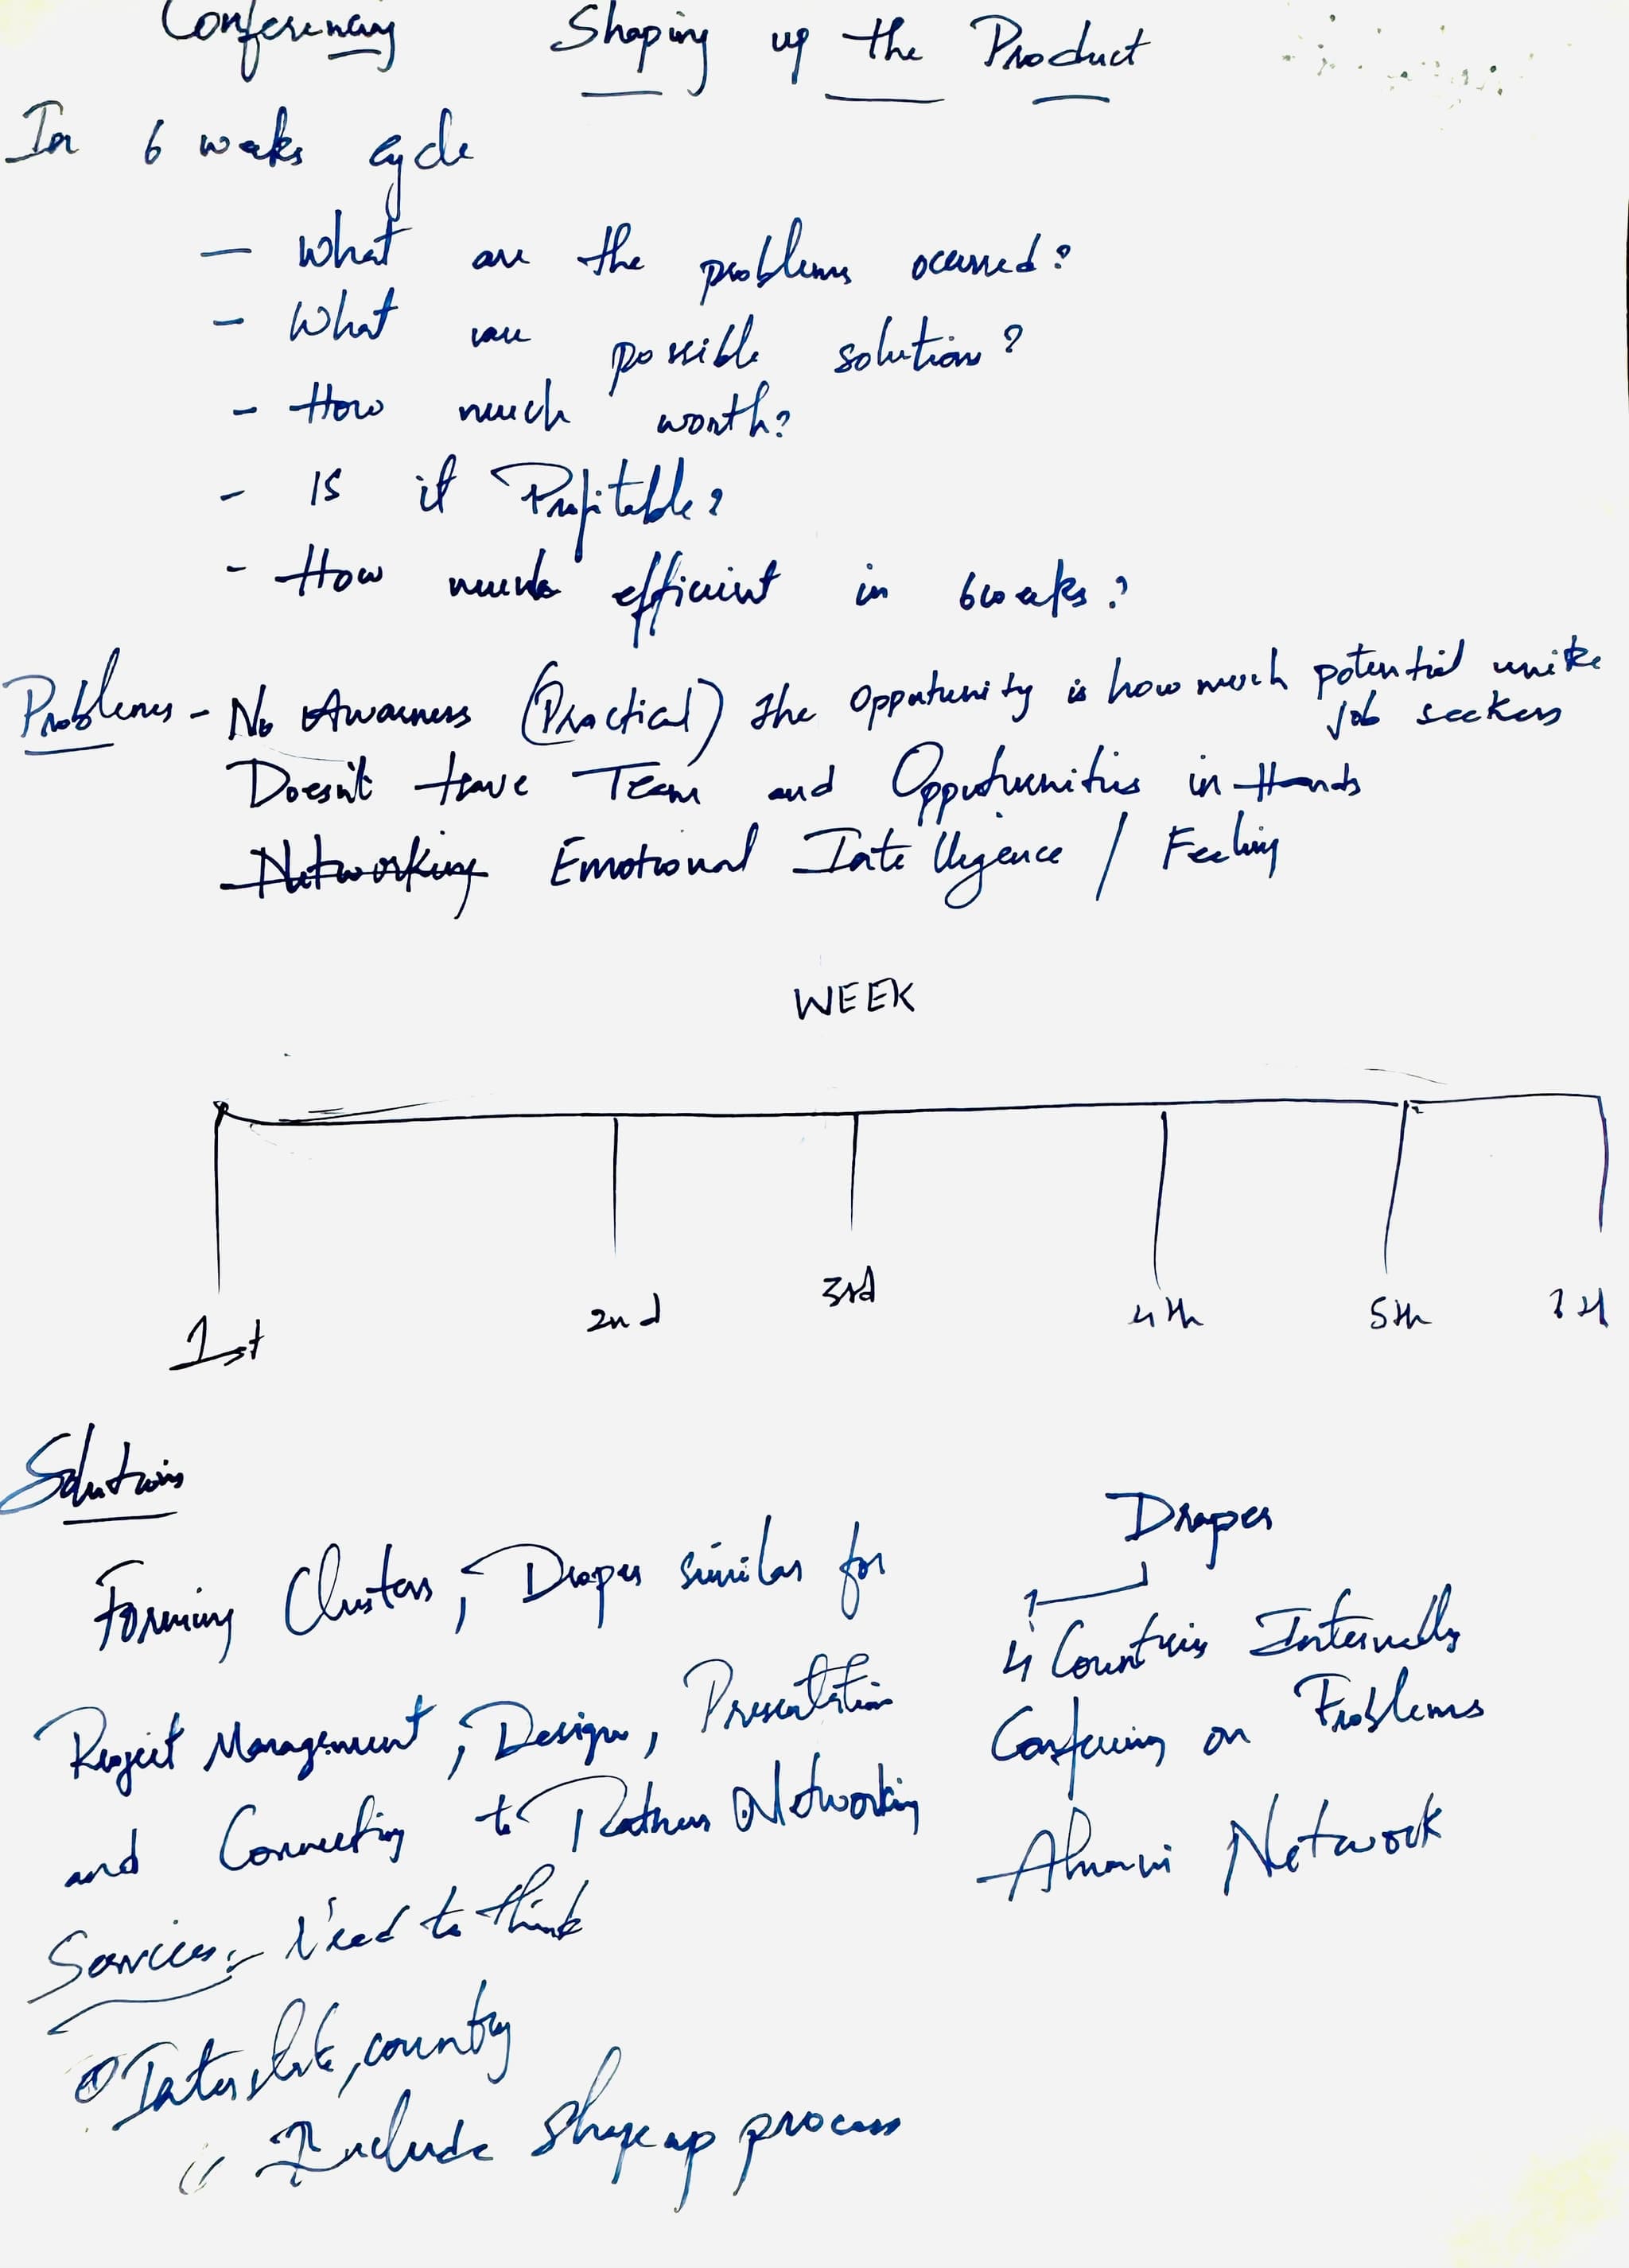 Conferencing Shaping up the Product
In 6 weeks cycle
- What are the problems ocurred?
- What are possible solution?
- How much worth?
- IS it Profitable?
- How much efficient in 6 weeks?
Problems - No Awarness (Practical) the opportunity is how much potential unike job seekers
Doesn't have Team and Opportunities in Hands
Networking Emotional Intelligence / Feeling
WEEK
1st 2nd 3rd 4th 5th
Solutions
Draper
Forming Clusters, Draper similar for
4 Countries Internally
Project Management, Design, Presentation
Confering on Problems
and Connecting to Networking
Alumni Network
Services:- Need to think
Interstate, country
" Include shape up process